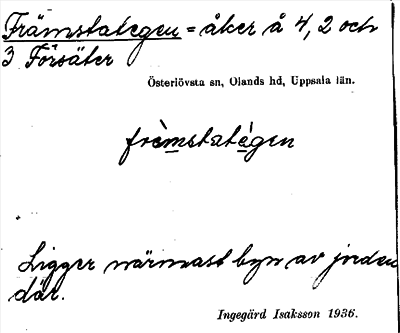 Främstategen = åker å 4, 2 och
3 Försäter
Österlövsta sn, Olands hd, Uppsala län.
frèmstatégen
Ligger närmast byn av jorden
där.
Ingegärd Isaksson 1936.